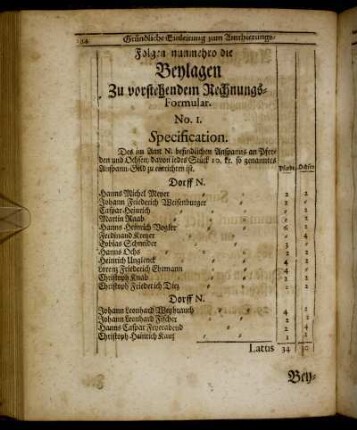 Gründliche Einleitung zum
Folgen nunmehro die
Beylagen
Zu vorstehendem Rechnungs-
Formular.
No. 1.
Specification.
Des im Amt N. befindlichen Anspanns an Pfer-
den und Ochsen, davon jedes Stück 10. kr. so genanntes
Anspann-Geld zu entrichten ist.
Pferde Ochsen
Dorff N.
Hanns Michel Meyer 2 2
Johann Friederich Weisenburger 2
Caspar Heinrich
Martin Raab 2
Hanns Heinrich Vogler 6 1
Ferdinand Kreyer 4
Tobias Schneider 3
Hanns Ochs 1
Heinrich Unglenck 4 2
Lorentz Friederich Ehrmann 4
Christoph Knab 2
Christoph Friederich Dietz 2
Dorff N.
Johann Leonhard Weyhrauch 4 1
Johann Leonhard Fischer
Hanns Caspar Feyerabend 2
Christoph Heinrich Kautz
Latus 34
Bey-